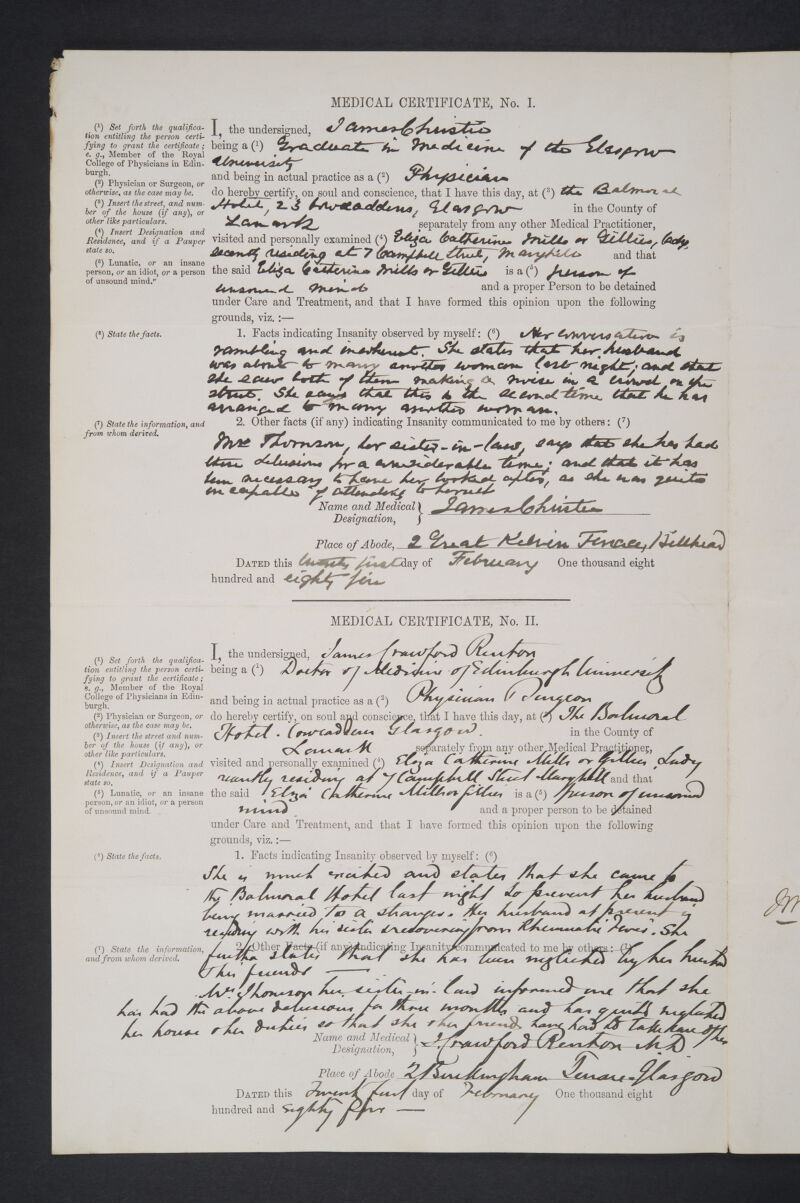 MEDICAL CERTIFICATE, No. I.
(1) Set forth the qualifica-
tion entitling the person certi-
fying to grant the certificate;
e. g., Member of the Royal
College of Physicians in Edin-
burgh.
(2) Physician or Surgeon, or
otherwise, as the case may be.
(3) Insert the street, and num-
ber of the house (if any), or
other like particulars.
(4) Insert Designation and
Residence, and if a Pauper
state so.
(5) Lunatic, or an insane
person, or an idiot, or a person
of unsound mind."
I, the undersigned, James Christie
being a (1) Graduate in Medicine of the Glasgow
University
and being in actual practice as a (2) Physician
do hereby certify, on soul and conscience, that I have this day, at (3) the Balmoral
Hotel, 23 Cowcaddens, Glasgow in the County of
Lanark separately from any other Medical Practitioner,
visited and personally examined (4) Eliza Catherine Mills or Gillies, lady,
recently residing at 7 Campbell Street, Maryhill and that
the said Eliza Catherine Mills or Gillies is a (5) person of
unsound mind and a proper Person to be detained
under Care and Treatment, and that I have formed this opinion upon the following
grounds, viz. :—
(6) State the facts.
1. Facts indicating Insanity observed by myself: (6) Her conversation is
rambling and incoherent. She states that her husband
was about to marry another woman last night; and that
she saw both of them making a noise in a crowd on the
street. She says that this is the second time that he has
arranged to marry another woman.
(7) State the information, and
from whom derived.
2. Other facts (if any) indicating Insanity communicated to me by others: (7)
Mrs Thomson, her sister-in-law, says that she has had
these delusions for a considerable time; and that it has
been necessary to have her looked after, as she was quite
incapable of attending to herself
Name and Medical Designation, James Christie
Place of Abode, 2 Great Kelvin Terrace, Hillhead
DATED this twenty first day of February One thousand eight
hundred and eighty five
MEDICAL CERTIFICATE, No. II.
(1) Set forth the qualifica-
tion entitling the person certi-
fying to grant the certificate;
e. g., Member of the Royal
College of Physicians in Edin-
burgh.
(2) Physician or Surgeon, or
otherwise, as the case may be.
(3) Insert the street and num-
ber of the house (if any), or
other like particulars.
(4) Insert Designation and
Residence, and if a Pauper
state so.
(5) Lunatic, or an insane
person, or an idiot, or a person
of unsound mind.
I, the undersigned, James Crawford Renton
being a (1) Doctor of Medicine of Edinburgh University
and being in actual practice as a (2) Physician & Surgeon
do hereby certify, on soul and conscience, that I have this day, at (3) The Balmoral
Hotel. Cowcaddens Glasgow. in the County of
Lanark separately from any other Medical Practitioner,
visited and personally examined (4) Eliza Catherine Mills or Gillies, Lady
recently residing at 7 Campbell Street Maryhill and that
the said Eliza Catherine Mills or Gillies is a (5) Person of unsound
mind and a proper Person to be detained
under Care and Treatment, and that I have formed this opinion upon the following
grounds, viz. :—
(6) State the facts.
1. Facts indicating Insanity observed by myself: (6)
She is much excited and states that she came to
the Balmoral Hotel last night to prevent her husband
being married to a stranger. Her husband at present is
residing with his sister & recovering from Rheumatic Fever. She
(7) State the information,
and from whom derived.
2. Other Facts (if any) indicating Insanity communicated to me by others: (7)
further states that she has been neglected by her husband
& his friends —
Mrs Thomson her sister-in-law informed me that she
has had the above delusions for three months and has quite neglected
her house & her duties so that she & her friends have had to take care of her
Name and Medical Designation, J. Crawford Renton M.D
Place of Abode 2 Buckingham Terrace Glasgow
DATED this Twenty first day of February One thousand eight
hundred and Eighty five —